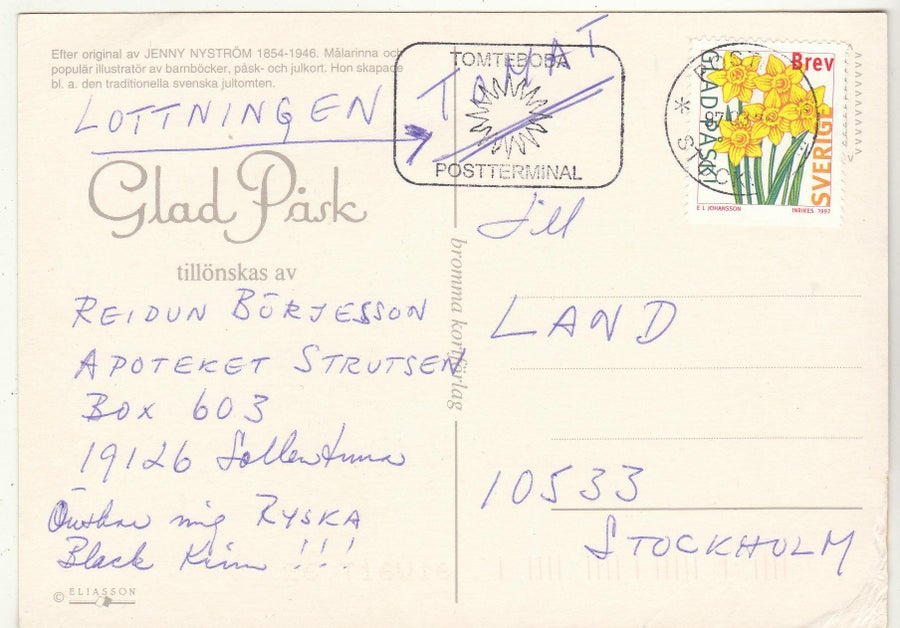 Efter original av JENNY NYSTRÖM 1854-1946. Målarinna och
populär illustratör av barnböcker, påsk- och julkort. Hon skapade
bl. a. den traditionella svenska jultomten.
LOTTNINGEN TOMAT
Glad Påsk
tillönskas av
REIDUN BÖRJESSON
APOTEKET STRUTSEN
BOX 603
19126 Sollentuna
Önskar mig RYSKA
Black Kinn !!!
© ELIASSON
bromma kortförlag
TOMTEBODA
POSTTERMINAL
Brev
GLAD PÅSK!
SVERIGE
E L JOHANSSON
INRIKES 1997
Till
LAND
10533
STOCKHOLM